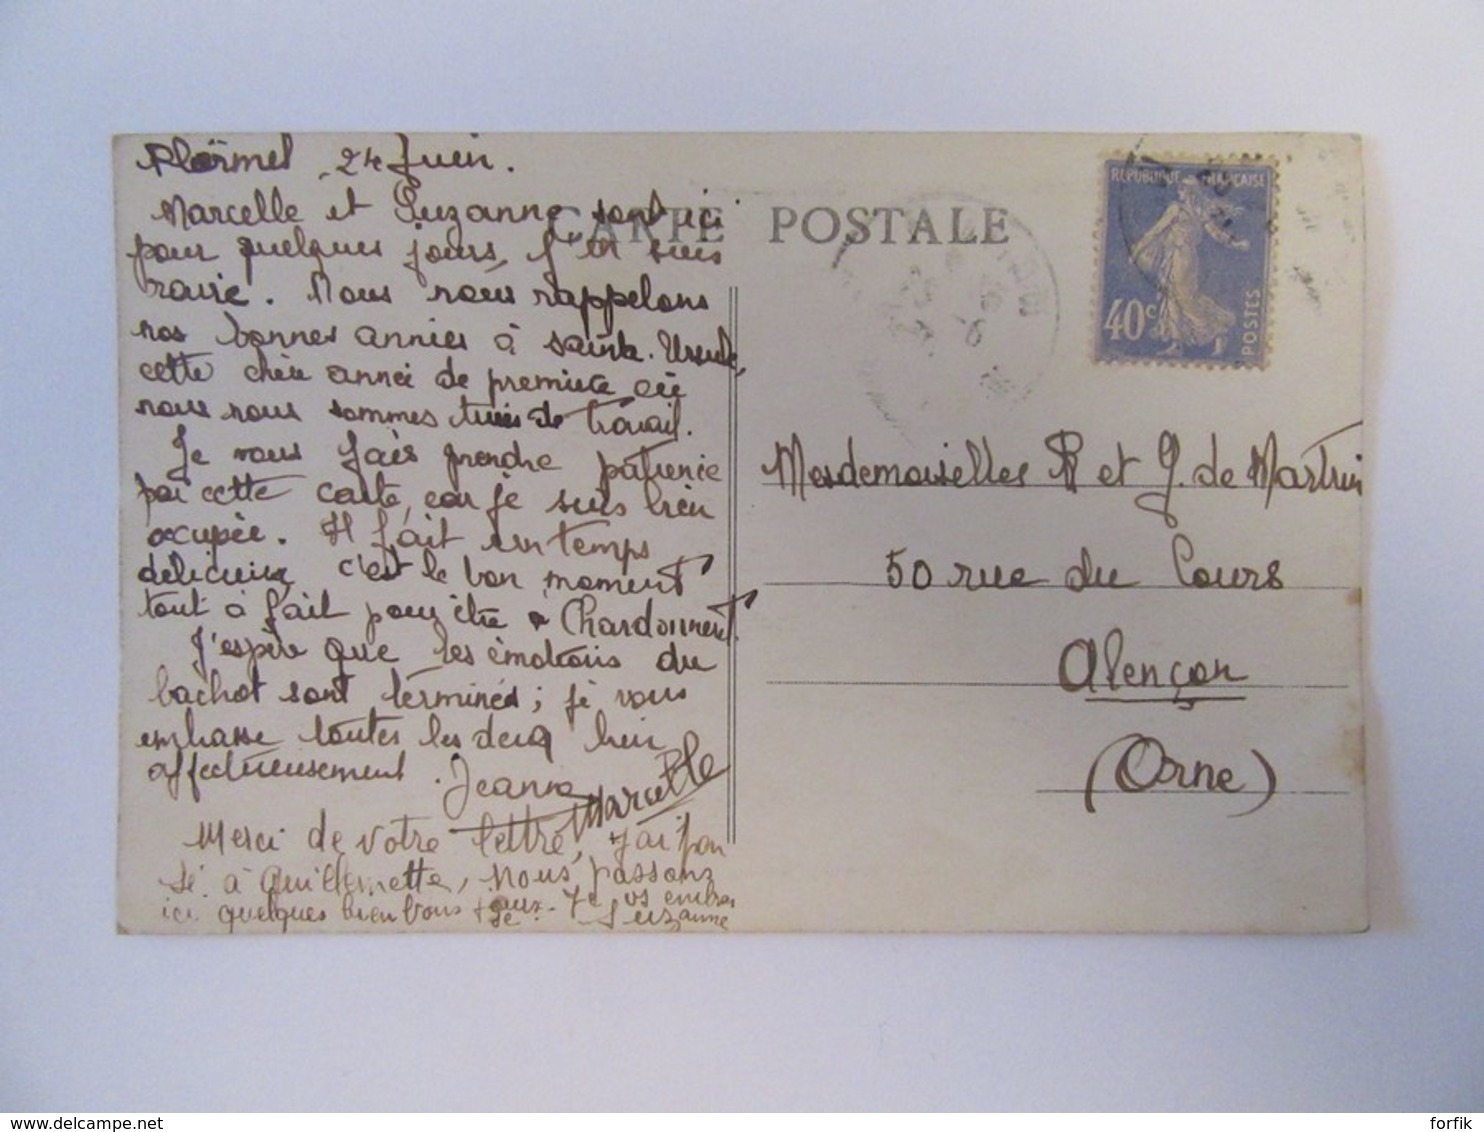 Ploërmel 24 Juin.
Marcelle et Suzanne sont ici
pour quelques jours, j'en suis
ravie. Nous nous rappelons
nos bonnes années à sainte. Ursule,
cette chère année de première où
nous nous sommes tuées de travail.
Je vous fais prendre patience
par cette carte, car je suis bien
occupée. Il fait un temps
délicieux, c'est le bon moment
tout à fait pour être à Chardonneret.
J'espère que les émotions du
bachot sont terminées; je vous
embrasse toutes les deux bien
affectueusement. Jeanne
Marcelle
Merci de votre lettre, j'ai pen
sé à Guillemette, Nous passons
ici quelques bien bons jours. Je vs embras
se Suzanne
CARTE POSTALE
REPUBLIQUE FRANÇAISE
40c
POSTES
Mesdemoiselles R et G. de Martrin
50 rue du Cours
Alençon
(Orne)
delcampe.net
forfik